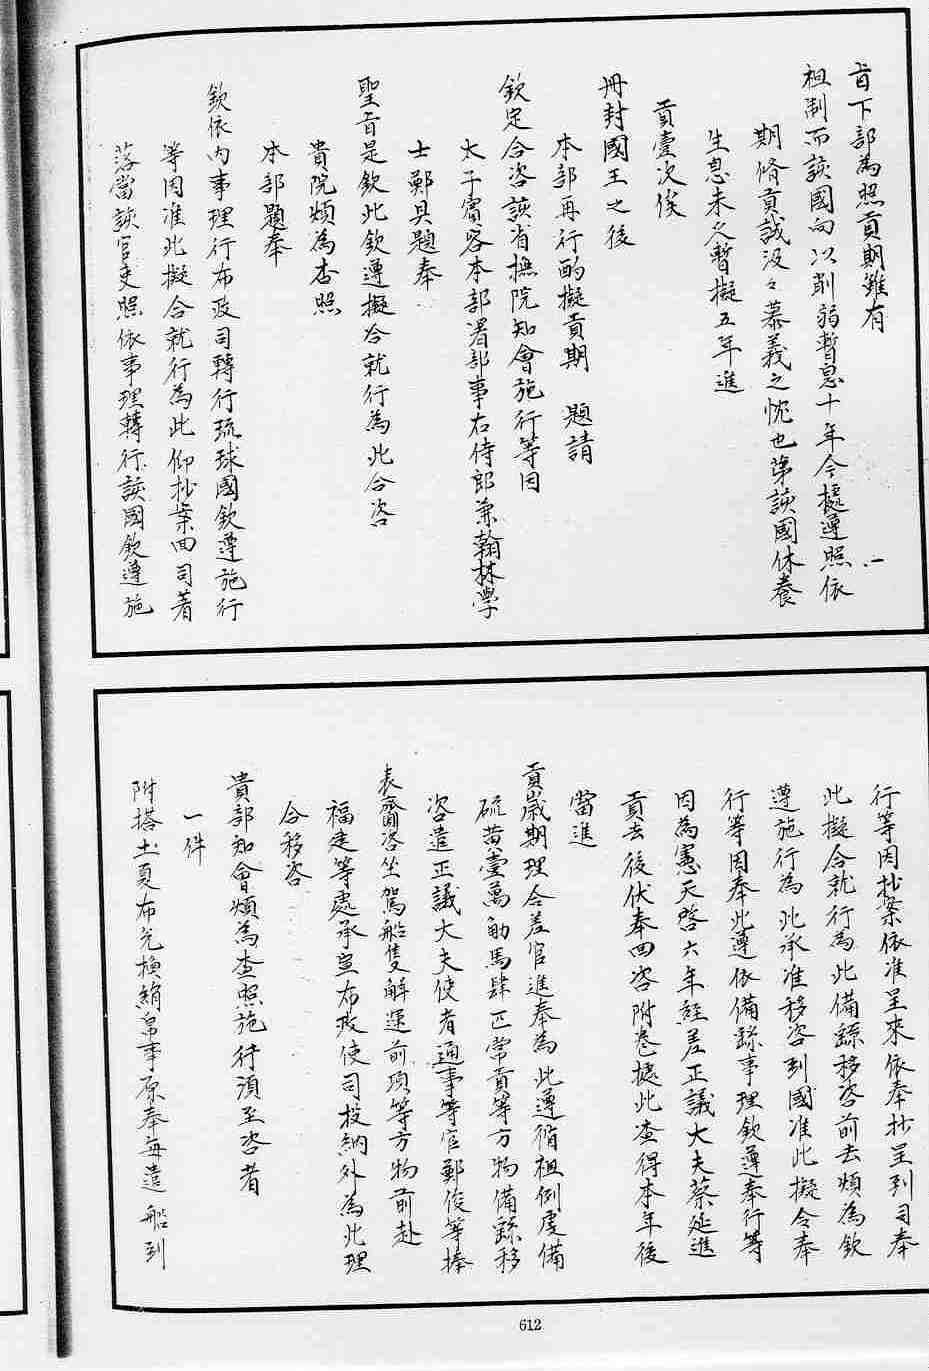 旨下部為照貢期雖有
祖制而該國向以削弱暫息十年今據遵照依
期脩貢誠汲々慕義之忱也第該國休養
生息未久暫擬五年進
貢壹次俟
冊封國王之後
本部再行酌擬貢期 題請
欽定合咨該省撫院知會施行等因
太子賓客本部署部事右侍郎兼翰林學
士鄭具題奉
聖旨是欽此欽遵擬合就行為此合咨
貴院煩為查照
本部題奉
欽依內事理行布政司轉行琉球國欽遵施行
等因准此擬合就行為此仰抄案回司著
落當該官吏照依事理轉行該國欽遵施
行等因抄案依准呈來依奉抄呈到司奉
此擬合就行為此備繇移咨前去煩為欽
遵施行為此承准移咨到國准此擬令奉
行等因奉此遵依備繇事理欽遵奉行等
因為憲天啓六年經差正議大夫蔡延進
貢去後伏奉四咨附卷據此查得本年後
當進
貢歲期理合差官進奉為此遵循祖例虔備
硫黃壹萬觔馬肆匹常貢等方物備繇移
咨遣正議大夫使者通事等官鄭俊等捧
表齎咨坐駕船隻解運前項等方物前赴
福建等處承宣布政使司投納外為此理
合移咨
貴部知會煩為查照施行須至咨者
一件
附搭土夏布兌換絹帛事原奉每遣船到
612